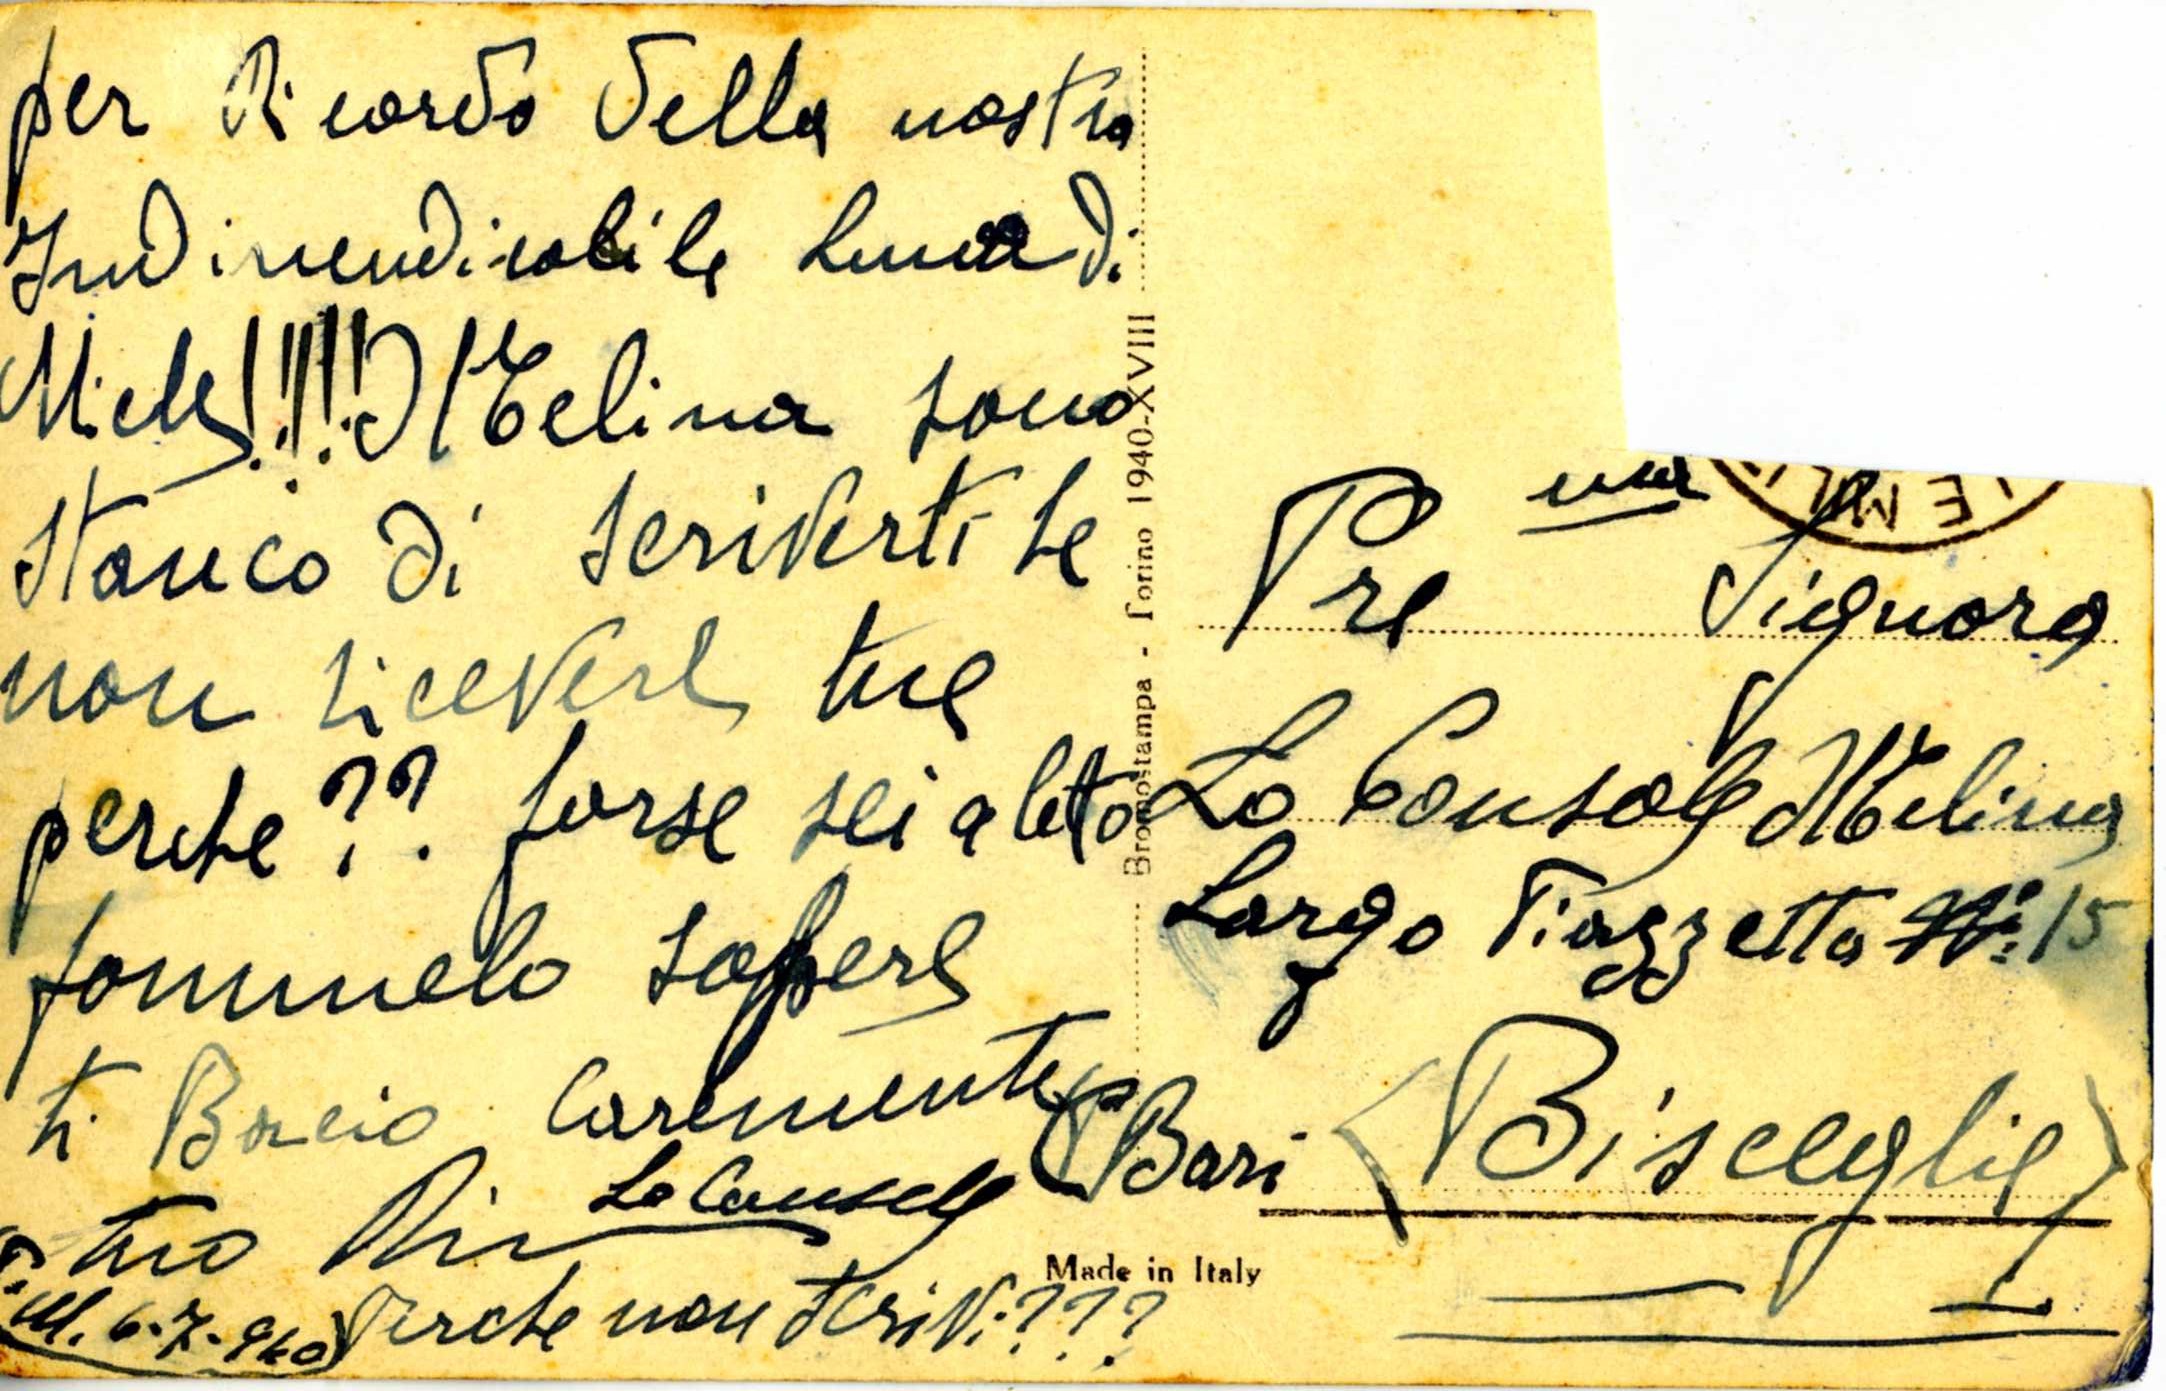 per Ricordo della nostra
Indimendicabile Luna di
Miele!!!! Melina sono
stanco di scriverti he
non ricevere tue
perche?? forse sei a letto
fammelo sappere
ti Bacio Caremente
tuo Lo Console
P.M. 6-7-940) Perche non scrivi???
Bromostampa - Torino 1940-XVIII
Made in Italy
Pre ma Signora
Lo Console Melina
Largo Piazzetta N: 15
(Bari (Bisceglie)